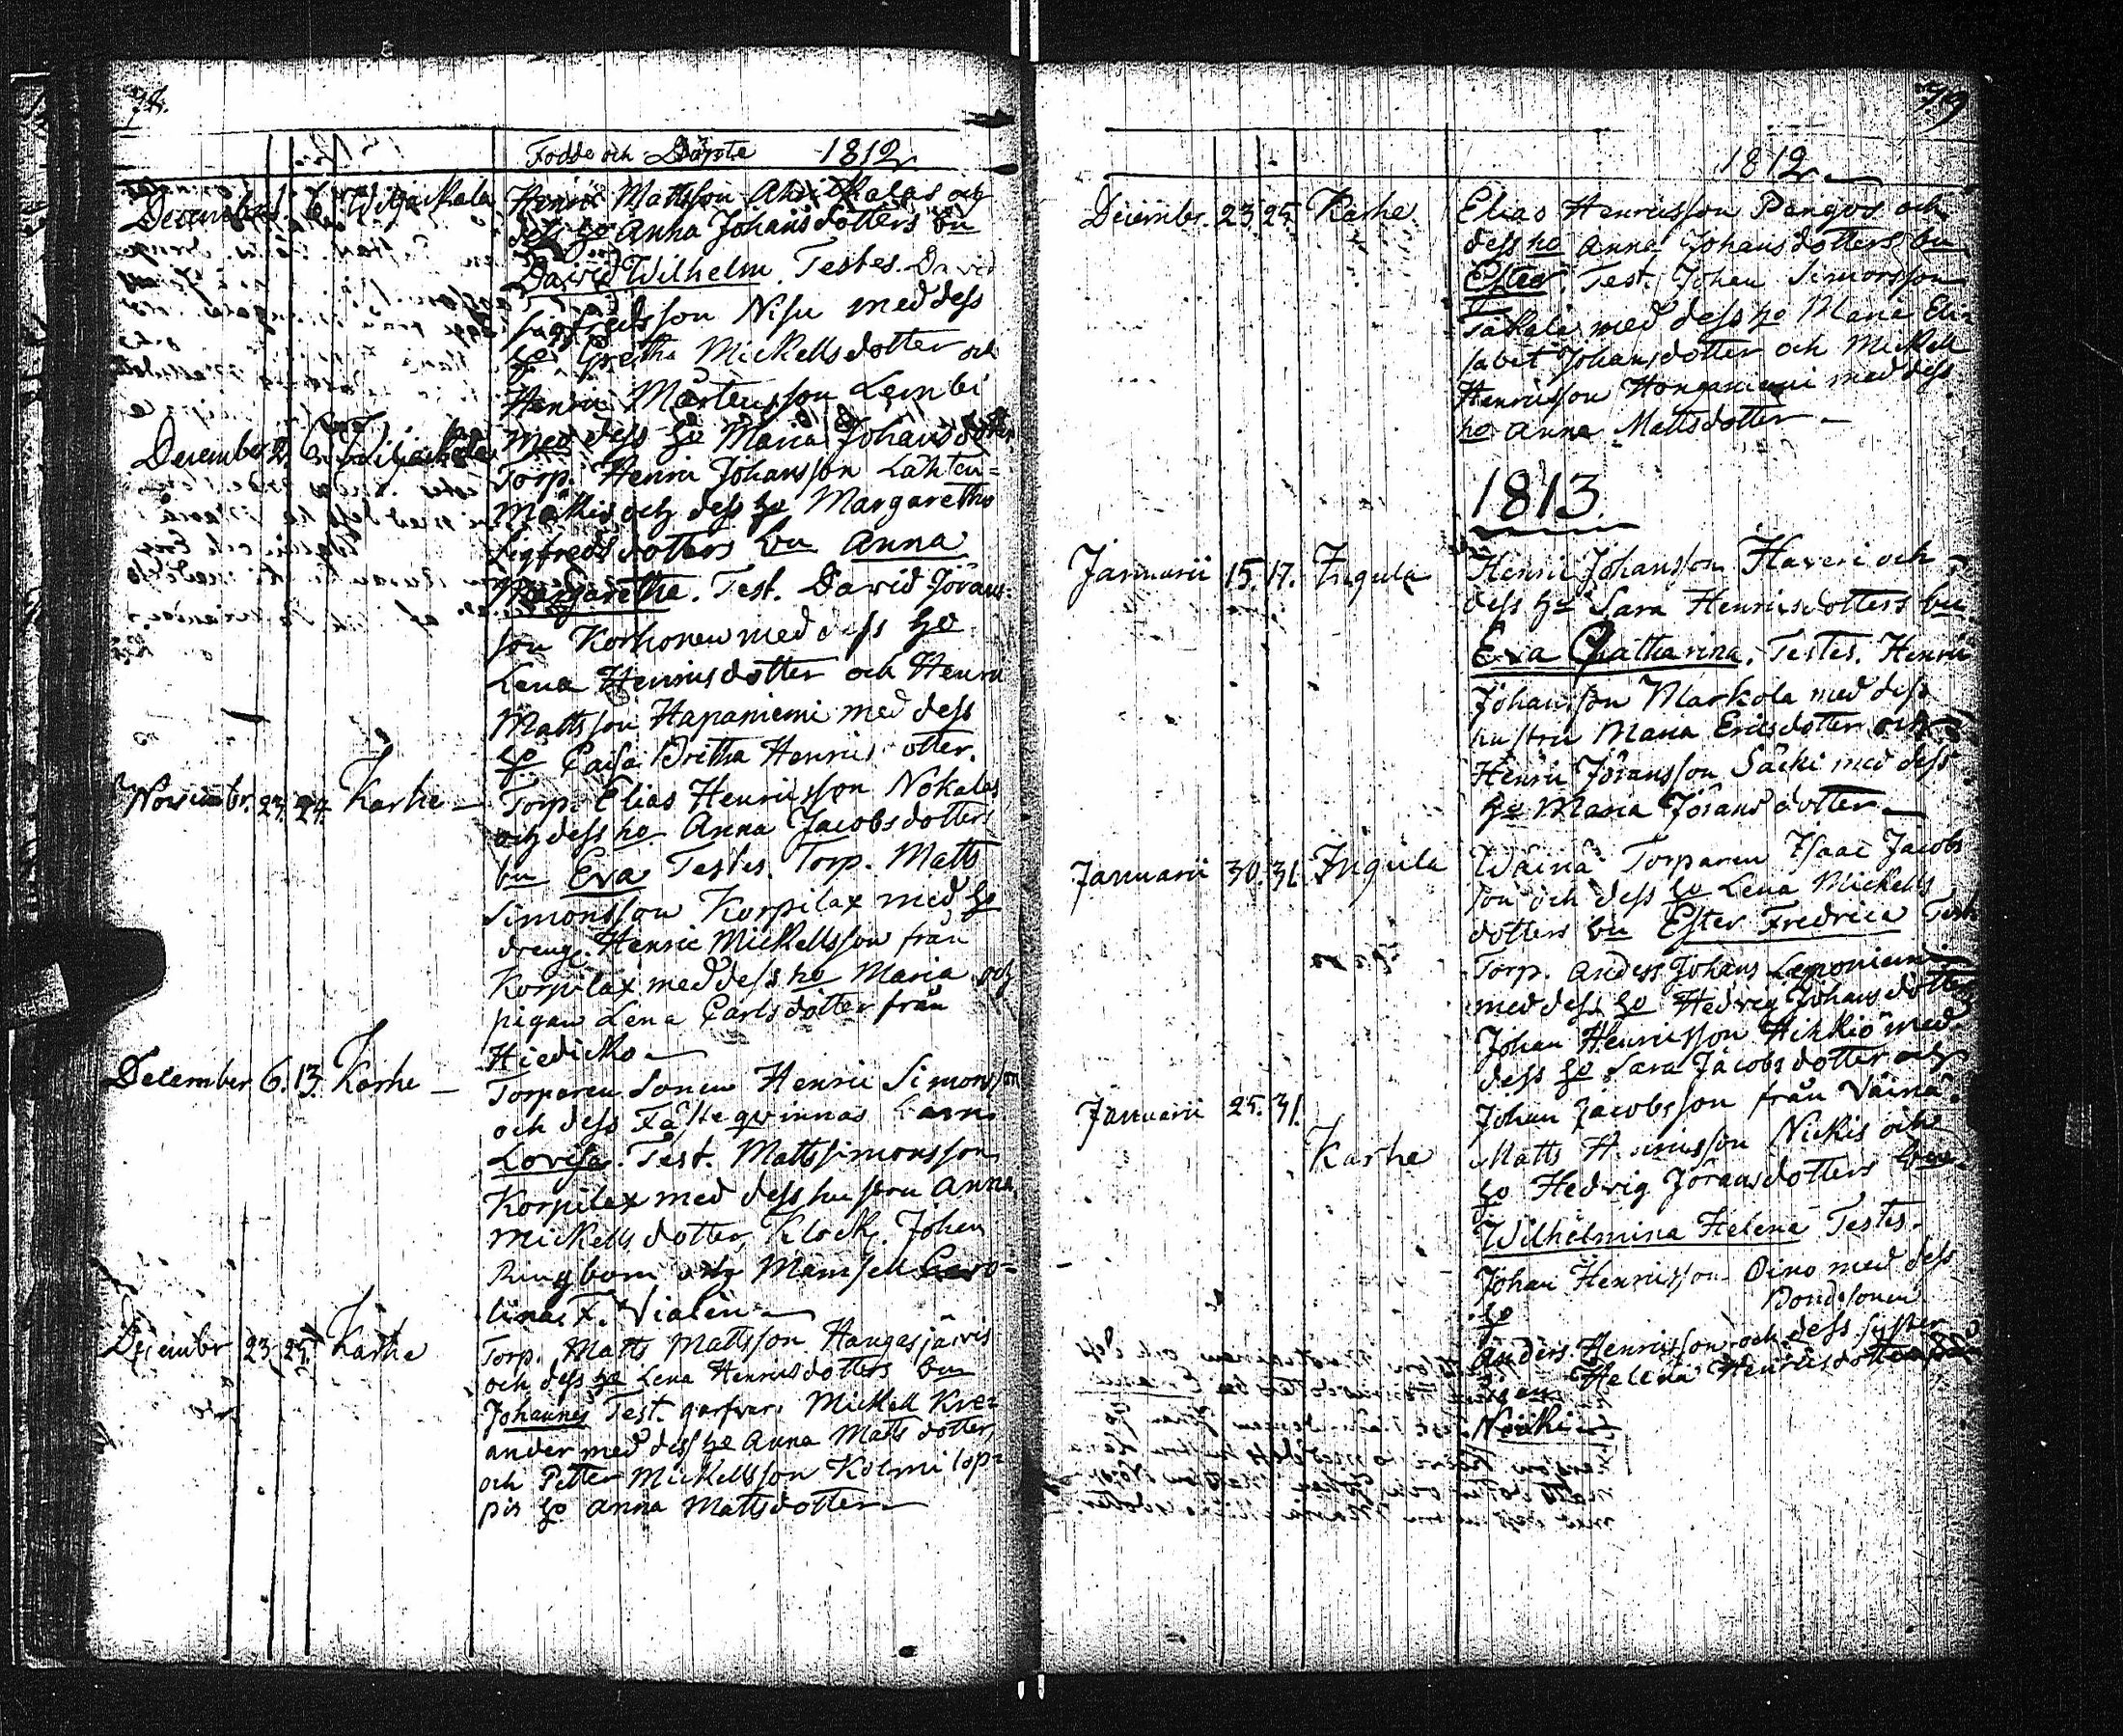 78.
Födde och Döpte 1812
December 1. 6. Wiljackala Henric Mattsson Ahrikkalas och
dess ho Anna Johansdotters bn
David Wilhelm. Testes. David
Sigfredsson Nisu med dess
ho Gretha Mickellsdotter och
Henric Mårtensson Lembi
med dess ho Maria Johansdotter
December 2. 6. Wiljackala Torp. Henric Johansson Lahten=
mäkis och dess ho Margaretha
Sigfredsdotters bn Anna
Margaretha. Test. David Jörans=
son Korhonen med dess ho
Lena Henricsdotter och Henric
Mattsson Hapaniemi med dess
ho Caisa Britha Henricsdotter.
Novembr. 23. 24. Karhe Torp. Elias Henricsson Nokalas
och dess ho Anna Jacobsdotters
bn Eva Testes. Torp. Matts
Simonsson Korpilax med ho
dreng. Henric Mickellsson från
Korpilax med dess ho Maria och
pigan Lena Carlsdotter från
Hiedicko
December 6. 13. Karhe Torparen Sonen Henric Simonsson
och dess Fästeqvinnas barn
Lovisa. Test. Matts Simonsson
Korpilax med dess hustru Anna
Mickellsdotter, Klock. Johan
Ringbom och Mamsell Caro=
lina F. Vialen
December 23. 25. Karhe Torp. Matts Mattsson Hangasjärvis
och dess ho Lena Henricsdotters bn
Johannes Test. garfvar. Mickell Kre=
ander med dess ho Anna Mattsdotter,
och Petter Mickellsson Kolmilop=
pis ho Anna Mattsdotter
79
1812
Decembr. 23. 25. Karhe Elias Henricsson Pengos och
dess ho Anna Johansdotters bn
Ester. Test. Johan Simonsson
Takala med dess ho Maria Eli=
sabet Johansdotter och Mickell
Henricsson Honganiemi med dess
ho Anna Mattsdotter
1813.
Januarii 15. 17. Ingula Henric Johansson Haveri och
dess ho Sara Henricsdotters bn
Eva Chatharina. Testes. Henric
Johansson Markola med dess
hustru Maria Ericsdotter och
Henric Jöransson Säcki med dess
ho Maria Jöransdotter
Januarii 30. 31. Ingula Wäinä Torparen Isaac Jacobs
son och dess ho Lena Mickells
dotters bn Ester Fredrica Test
Torp. Anders Johans Lemoniemi
med dess ho Hedvig Johansdotter
Johan Henricsson Hirkiö med
dess ho Sara Jacobsdotter och
Johan Jacobsson från Väinä
Januarii 25. 31. Karhe Matts Henricsson Nickis och
ho Hedvig Jöransdotters bn
Wilhelmina Helena Testes.
Johan Henricsson Oino med dess
ho Bondsonen
Anders Henricsson och dess syster
Helena Henricsdotter
Nicki